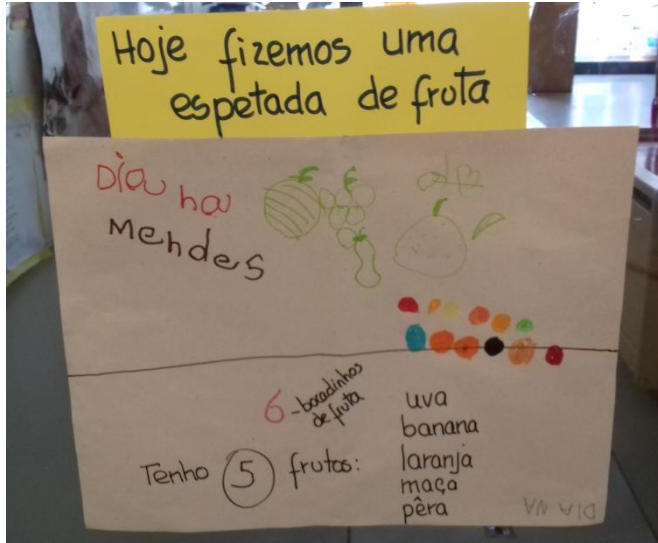 Hoje fizemos uma
espetada de fruta
Diana
Mendes
6 - bocadinhos
de fruta
Tenho 5 frutas:
uva
banana
laranja
maça
pêra
DIANA